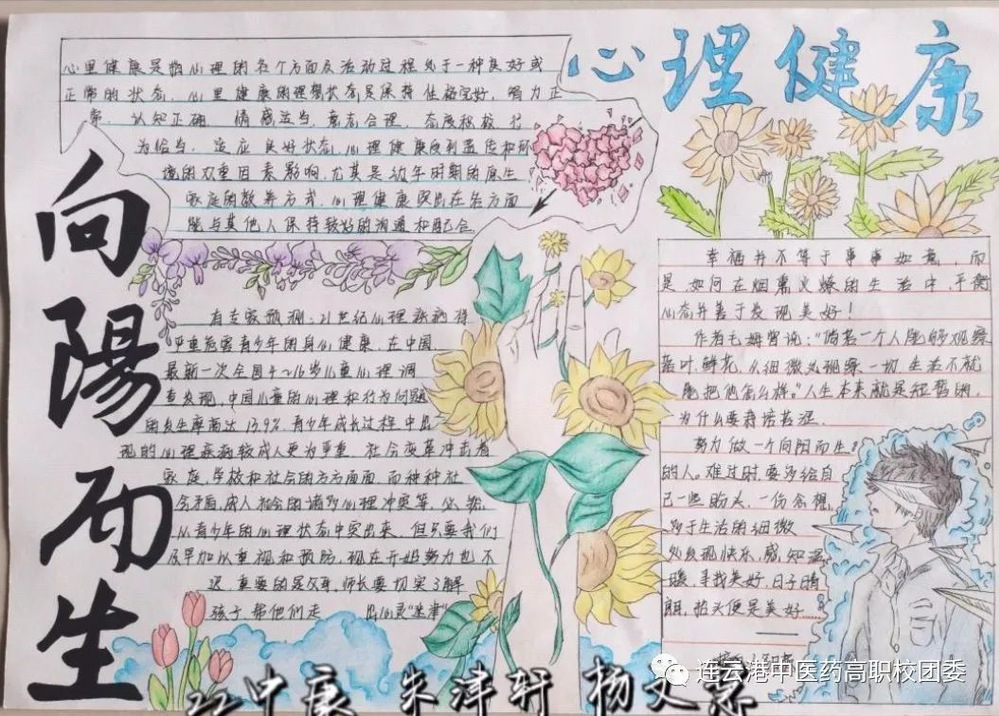 心理健康
向陽而生
心里健康是指心理的各个方面及活动过程处于一种良好或
正常的状态。心里健康的理想状态是保持性格完好、智力正
常、认知正确、情感适当、意志合理、态度积极、行
为恰当、适应良好状态,心理健康受到遗传和环
境的双重因素影响,尤其是幼年时期的原生
家庭的教养方式,心理健康突出在各方面
能与其他人保持较好的沟通和配合
有专家预测:21世纪心理疾病将
严重危害青少年的身心健康。在中国
最新一次全国4~16岁儿童心理调
查发现,中国儿童的心理和行为问题
的发生率高达13.9%。青少年成长过程中出
现的心理疾病较成人更为严重。社会变革冲击着
家庭、学校和社会的方方面面,而种种社
会矛盾,成人社会的诸多心理冲突等,必将
从青少年的心理状态中突出来。但只要我们
及早加以重视和预防,现在开始努力也不
迟,重要的是父母、师长要切实了解
孩子,帮他们走 出心灵"迷津"
幸福并不等于事事如意,而
是如何在烟熏火燎的生活中,平衡
心态并善于发现美好!
作者毛姆曾说:"倘若一个人能够观察
落叶、鲜花,从细微处观察一切,生活不就
能把他怎么样。"人生本来就是短暂的,
为什么要栽培苦涩。
努力做一个向阳而生
的人。难过时,要多给自
己一些盼头,一份念想,
多于生活的细微
处发现快乐,感知温
暖,寻找美好,日子晴
朗,抬头便是美好……
康 朱沣轩 杨文
连云港中医药高职校团委